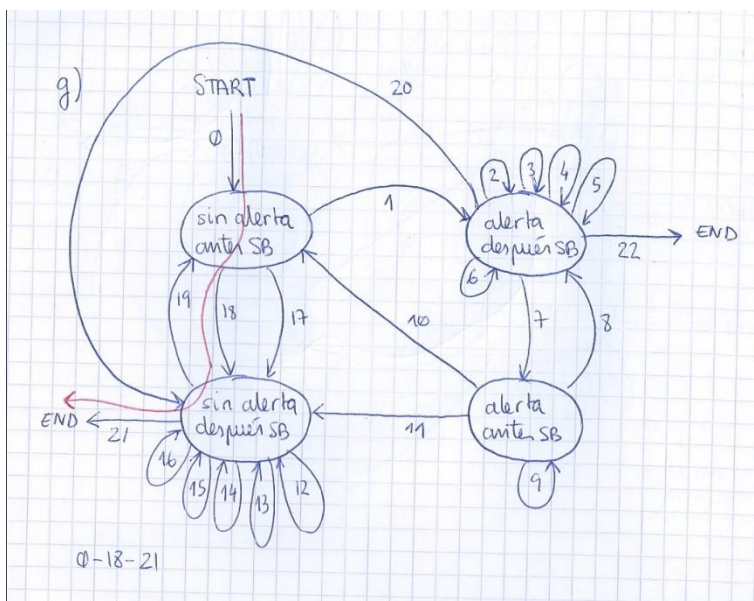 g)
START
20
0
2 3 4 5
sin alerta
antes SB
1
alerta
después SB
22
END
6
19
18
17
10
7
8
sin alerta
después SB
END
21
11
alerta
antes SB
16
15
14
13
12
9
0-18-21